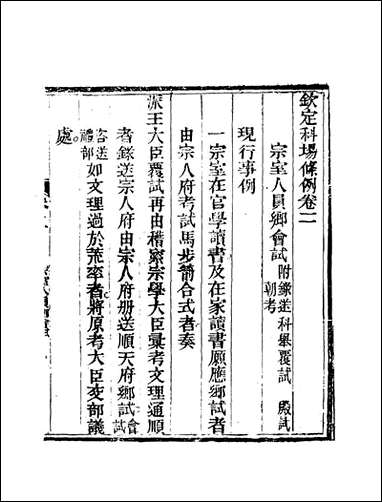 欽定科場條例卷二
宗室人員鄉會試附錄送科舉覆試 殿試朝考
現行事例
一宗室在官學讀書及在家讀書願應鄉試者
由宗人府考試馬步箭合式者奏
派王大臣覆試再由稽察宗學大臣彙考文理通順
者錄送宗人府由宗人府册送順天府鄉試會試
咨送禮部如文理過於荒率者將原考大臣交部議
處